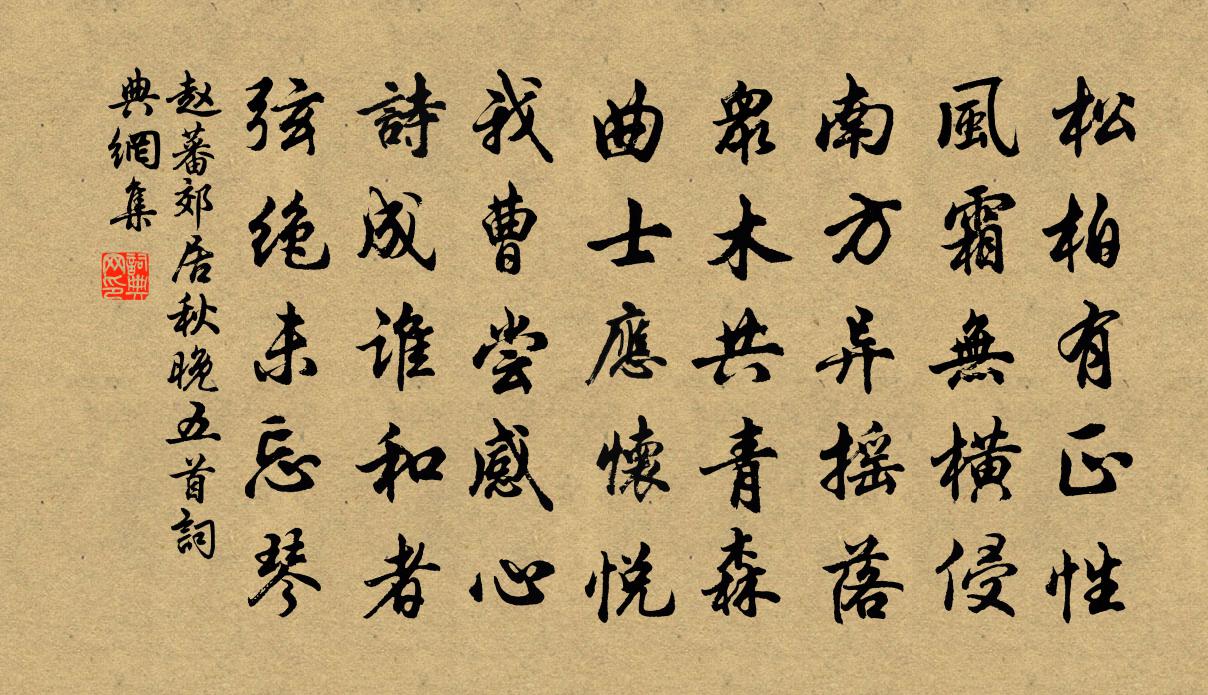 松柏有正性
風霜無橫侵
南方异摇落
衆木共青森
曲士應懷悦
我曹尝感心
詩成谁和者
弦绝未忘琴
赵蕃郊居秋晚五首詞
典網集
詞典
网印